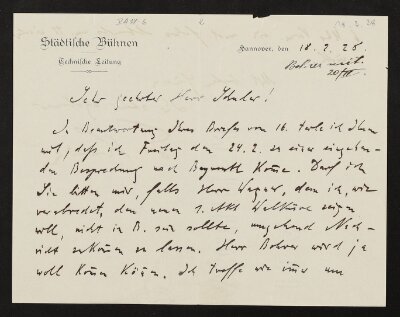 Städtische Bühnen
Technische Leitung
Hannover, den 18. 2. 28.
Sehr geehrter Herr Schuler!
In Beantwortung Ihres Briefes vom 16. teile ich Ihnen
mit, daß ich Freitag den 24. 2. zu einer eingehen-
den Besprechung nach Bayreuth komme. Darf ich
Sie bitten mir, falls Herr Wagner, dem ich, wie
verabredet, den neuen 1. Akt Walküre zeigen
will, nicht in B. sein sollte, umgehend Nach-
richt zukommen zu lassen. Herr Bohrer wird ja
wohl kommen können. Ich treffe wie immer um